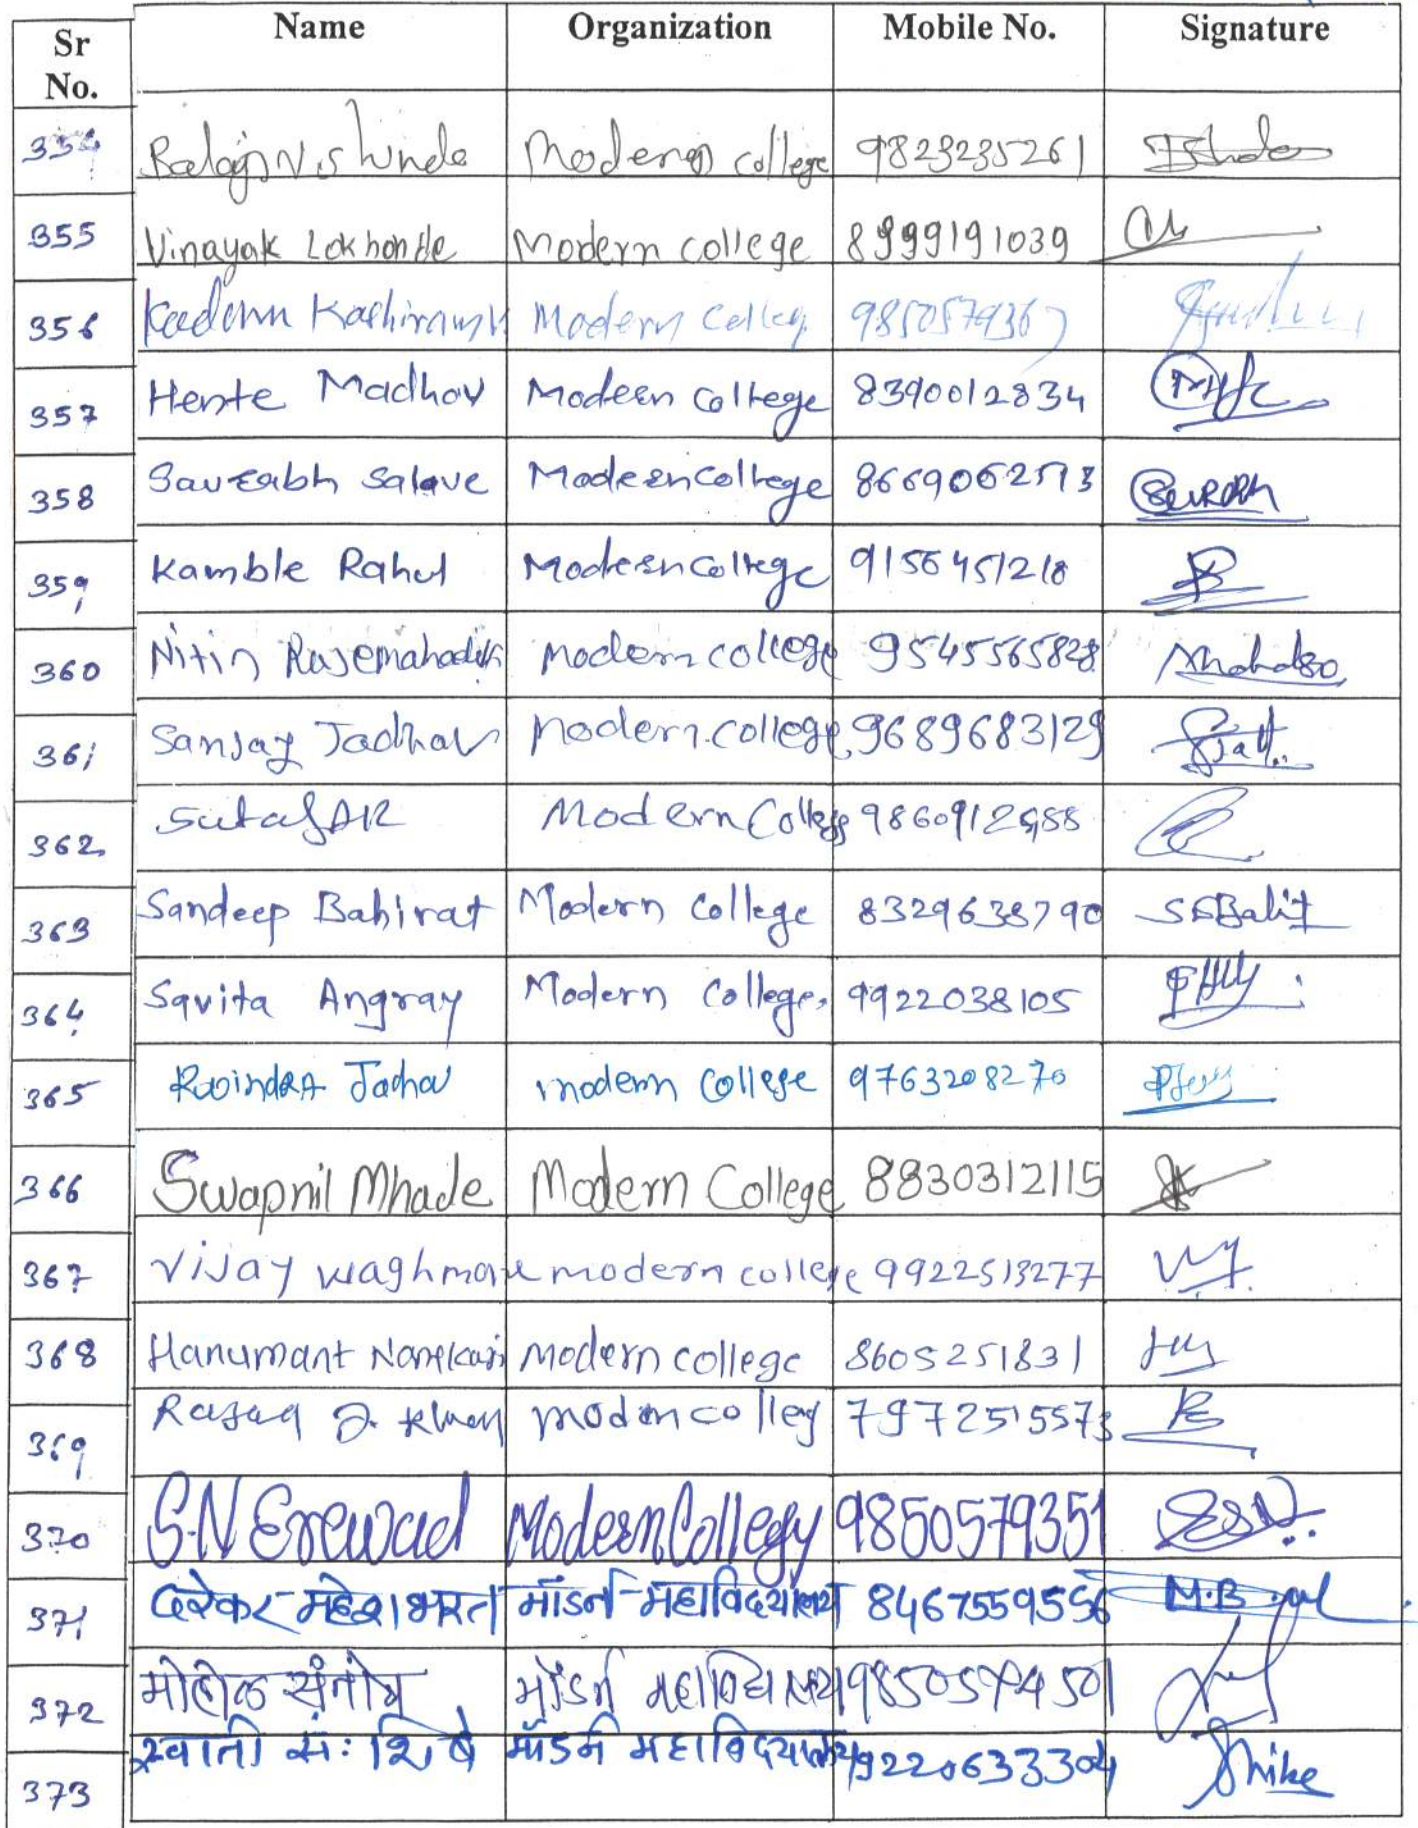 Sr No. Name Organization Mobile No. Signature
354 Balaji N. Shinde Modern college 9823235261
355 Vinayak Lokhonde Modern college 8999191039
356 Kadam Kashiram Modern College 9850579367
357 Hente Madhav Modern college 8390012834
358 Saurabh Salave Modern college 8669062513
359 Kamble Rahul Modern college 9156451218
360 Nitin Rajemahadik Modern college 9545565828
361 Sanjay Jadhav Modern college 9689683129
362 Sutar AR Modern College
363 Sandeep Bahirat Modern College 8329638790
364 Savita Angray Modern College, 9922038105
365 Ravindra Jadhav modern college 9763208270
366 Swapnil Mhade Modern College 8830312115
367 Vijay waghmare modern college 9922513277
368 Hanumant Modern college 8605251831
369 modern 7972515573
370 S.N Erewad Modern College 9850579351
371 दरेकर महेश भरत मॉडर्न महाविद्यालय 8467559556
372 मोहोळ संतोष मॉडर्न महाविद्यालय 9850574501
373 स्वाती सं. मॉडर्न महाविद्यालय 9922063330